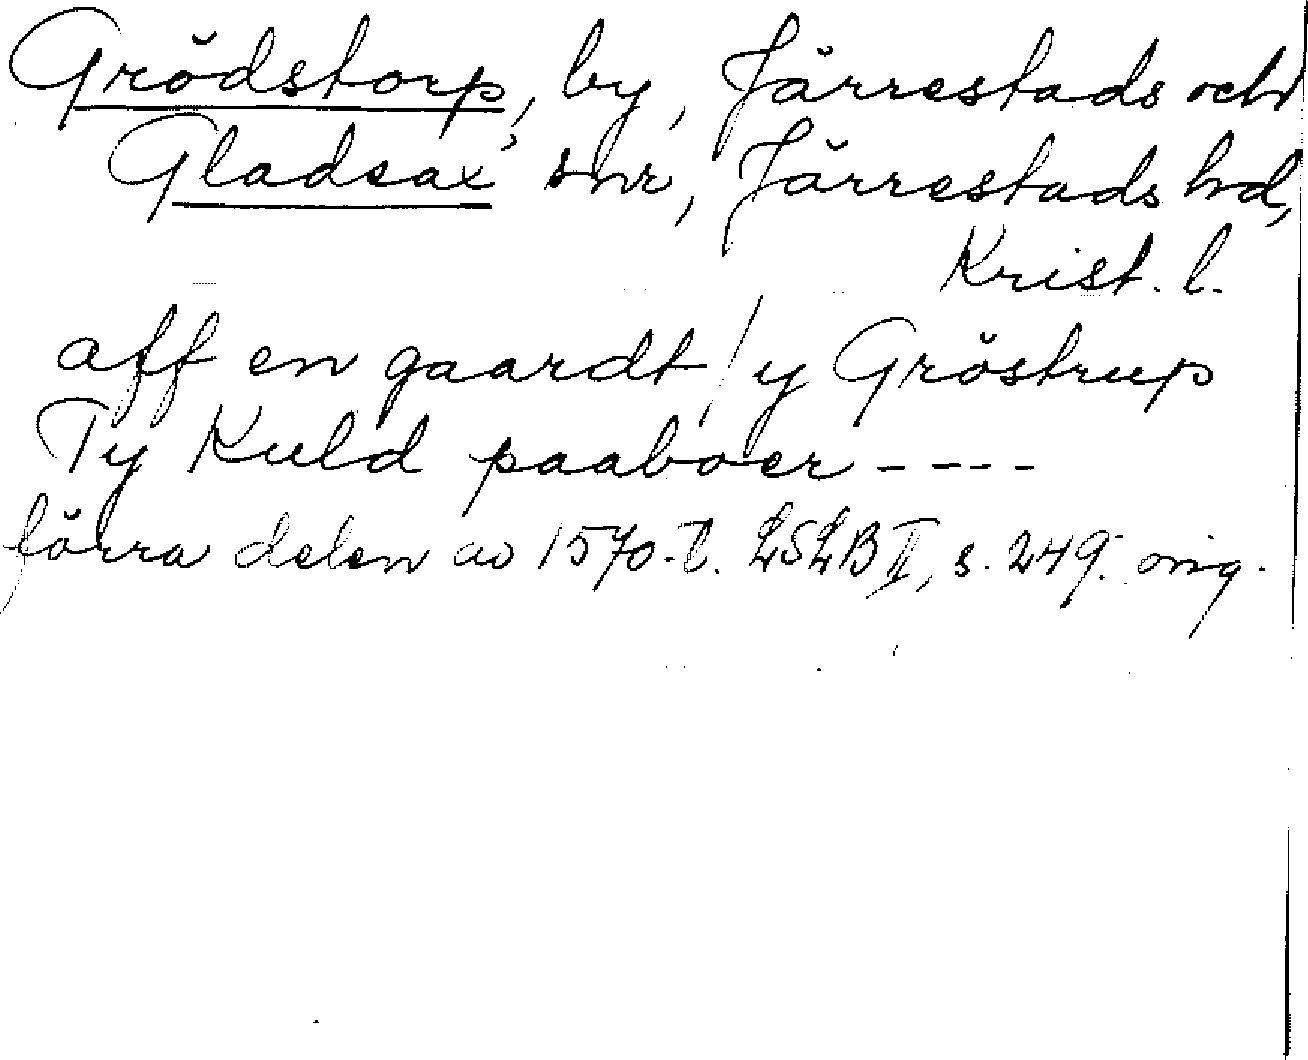 Grödstorp, by, Järrestads och
Gladsax' snr, Järrestads hd,
Krist. l.
aff en gaardt / y Gröstrup
Ty Kuld paaboer - - - -
förra delen av 1570-t. LSLB II, s. 249. orig.